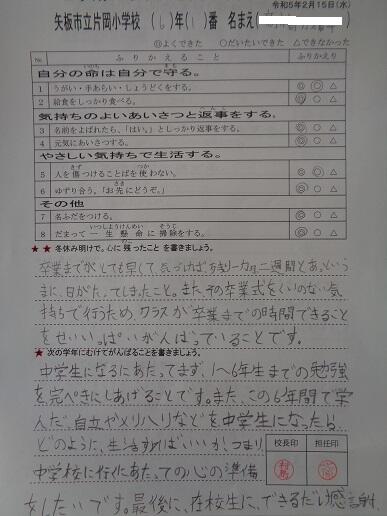 令和5年2月15日(水)
矢板市立片岡小学校 (6)年(1)番 名まえ(
◎よくできた ○だいたいできた △できなかった
№ ふりかえること ふりかえり
自分の命は自分で守る。
1 うがい・手あらい・しょうどくをする。 ◎ ○ △
2 給食をしっかり食べる。 ◎ ○ △
気持ちのよいあいさつと返事をする。
3 名前をよばれたら、「はい」としっかり返事をする。 ◎ ○ △
4 元気にあいさつする。 ◎ ○ △
やさしい気持ちで生活する。
5 人を傷つけることばを使わない。 ◎ ○ △
6 ゆずり合う。「お先にどうぞ。」 ◎ ○ △
その他
7 名ふだをつける。 ◎ ○ △
8 だまって一生懸命に掃除をする。 ◎ ○ △
★ ★ 冬休み明けで、心に残ったことを書きましょう。
卒業までがとても早くて、気づけば、あと一カ月二週間とあっという
まに、日がたってしまったこと。また、その卒業式をくいのない気
持ちで行うため、クラスが卒業までの時間できること
をせいいっぱいがんばっていることです。
★ 次の学年にむけてがんばることを書きましょう。
中学生になるにあたってまず、1〜6年生までの勉強
を完ぺきにしあげることです。また、この6年間で学
んだ、自立やメリハリなどを中学生になったら
どのように、生活すればいいか、つまり、
中学校に行くにあたっての心の準備
をしたいです。最後に、在校生に、できるだけ感謝
校長印 担任印